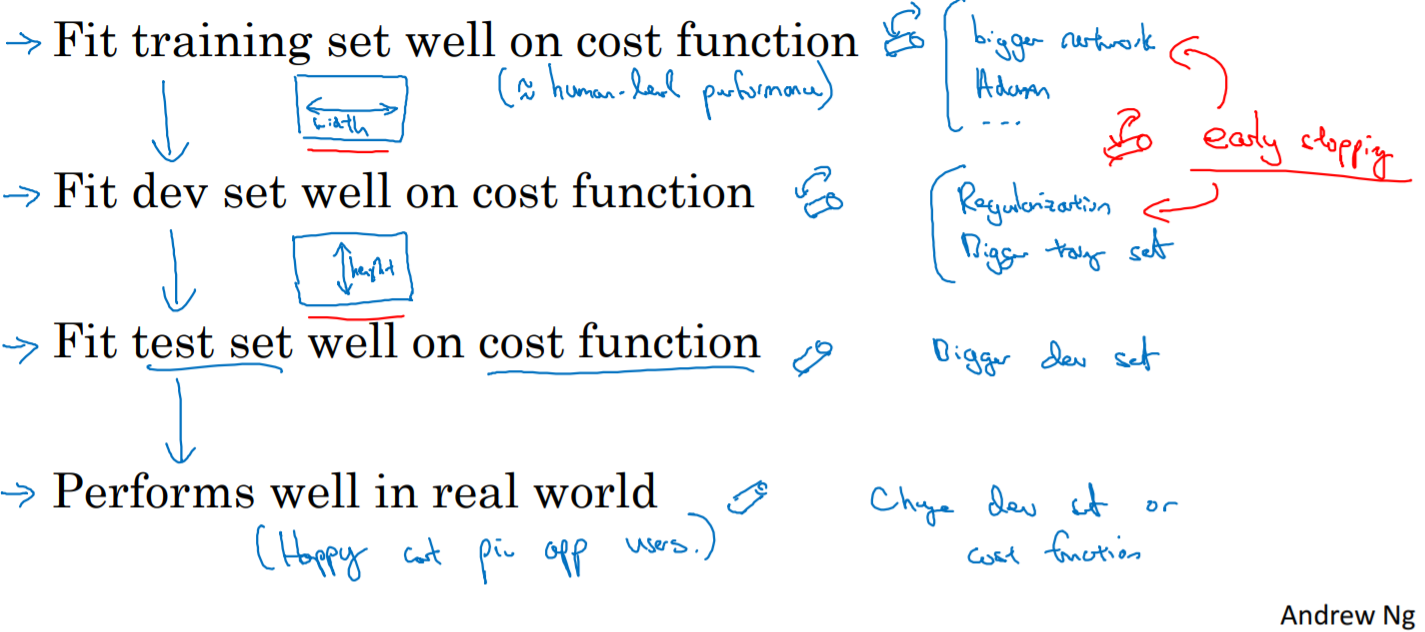 → Fit training set well on cost function
(≈ human-level performance)
bigger network
Adam
...
width
early stopping
→ Fit dev set well on cost function
Regularization
Bigger set
height
→ Fit test set well on cost function
Bigger dev set
→ Performs well in real world
(Happy cat pic app users.)
Change dev set or
cost function
Andrew Ng